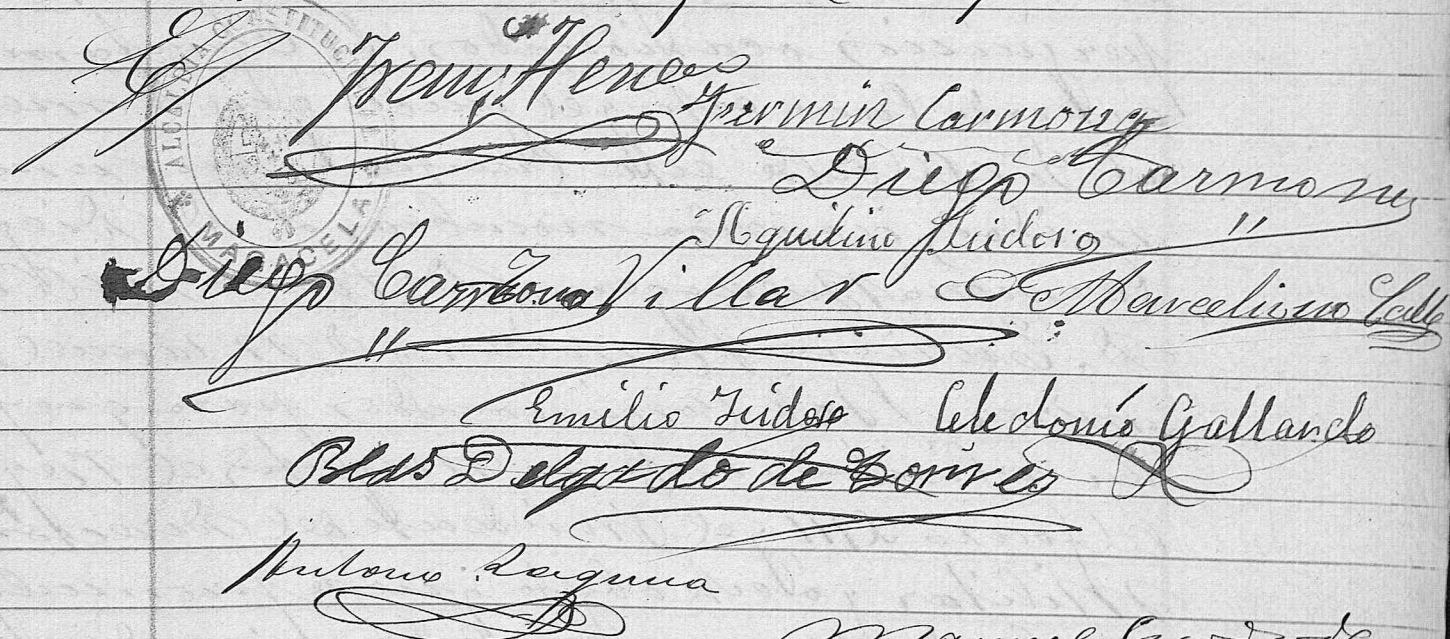 ALCALDIA CONSTITUCIONAL
MAGACELA
Fermin Carmona
Diego Carmona
Aquilino Isidoro
Diego Carmona Villar Marcelino Calle
Emilio Isidoro Celedonio Gallardo
Blas Delgado de Torres
Antonio Laguna
Manuel